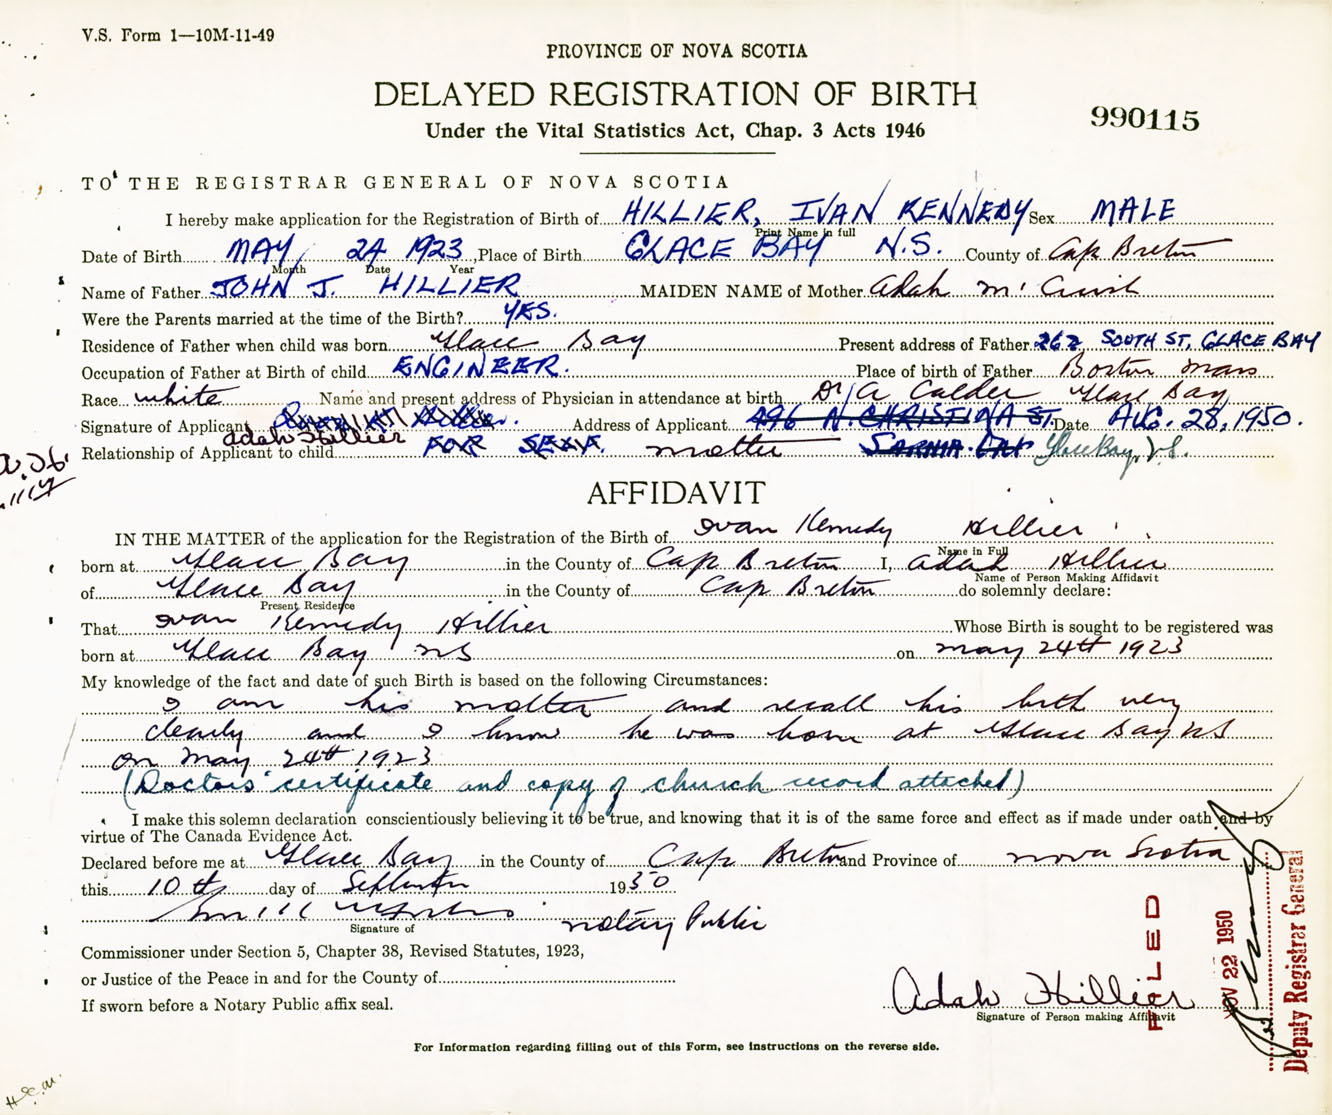 V.S. Form 1—10M-11-49
PROVINCE OF NOVA SCOTIA
DELAYED REGISTRATION OF BIRTH
990115
Under the Vital Statistics Act, Chap. 3 Acts 1946
TO THE REGISTRAR GENERAL OF NOVA SCOTIA
I hereby make application for the Registration of Birth of HILLIER, IVAN KENNEDY Sex MALE
Print Name in full
Date of Birth MAY 24 1923, Place of Birth GLACE BAY N.S. County of Cap Breton
Month Date Year
Name of Father JOHN J. HILLIER MAIDEN NAME of Mother Adah
Were the Parents married at the time of the Birth? YES.
Residence of Father when child was born Glace Bay Present address of Father 262 SOUTH ST. GLACE BAY
Occupation of Father at Birth of child ENGINEER. Place of birth of Father Boston Mass
Race white Name and present address of Physician in attendance at birth Dr A Calder Glace Bay
Signature of Applicant Address of Applicant 496 N. CHRISTINA ST. Date AUG. 28, 1950.
Adah Hillier
Relationship of Applicant to child mother SARNIA Glace Bay, N.S.
AFFIDAVIT
IN THE MATTER of the application for the Registration of Birth of Ivan Kennedy Hillier
Name in Full
born at Glace Bay in the County of Cap Breton I, Adah Hillier
Name of Person Making Affidavit
of Glace Bay in the County of Cap Breton do solemnly declare:
Present Residence
That Ivan Kennedy Hillier Whose Birth is sought to be registered was
born at Glace Bay NS on May 24th 1923
My knowledge of the fact and date of such Birth is based on the following Circumstances:
I am his mother and recall his birth very
clearly and I know he was born at Glace Bay NS
on May 24th 1923
(Doctors' certificate and copy of church record attached)
I make this solemn declaration conscientiously believing it to be true, and knowing that it is of the same force and effect as if made under oath and by
virtue of The Canada Evidence Act.
Declared before me at Glace Bay in the County of Cap Breton and Province of Nova Scotia
this 10th day of September 1950
Notary Public
Signature of
Commissioner under Section 5, Chapter 38, Revised Statutes, 1923,
or Justice of the Peace in and for the County of
If sworn before a Notary Public affix seal.
Adah Hillier
Signature of Person making Affidavit
FILED
NOV 22 1950
Deputy Registrar General
For Information regarding filling out of this Form, see instructions on the reverse side.
H.E.M.